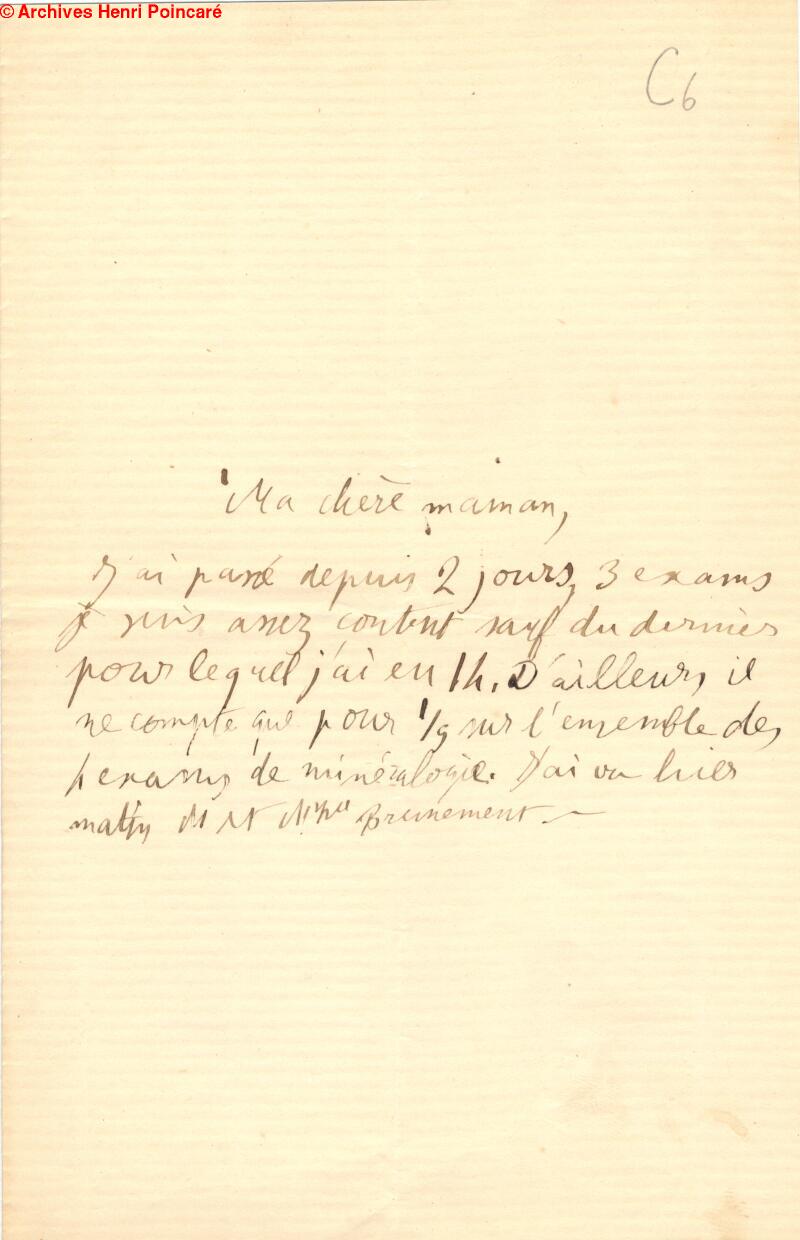 © Archives Henri Poincaré
C6
Ma chère maman,
J'ai passé depuis 2 jours, 3 exams
je suis assez content sauf du dernier
pour lequel j'ai eu 14. D'ailleurs il
ne compte que pour 1/9 sur l'ensemble des
exams de minéralogie. J'ai vu hier
matin M et Brunement